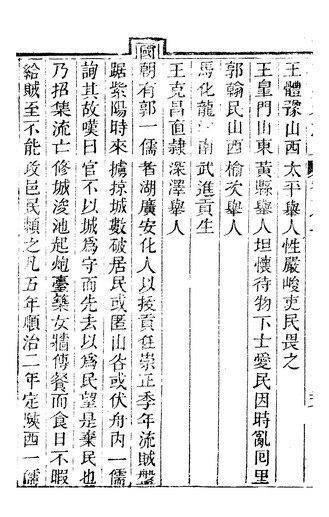 王體豫山西太平舉人性嚴峻吏民畏之
王皇門山東黃縣舉人坦懷待物下士愛民因時亂囘里
郭翰民山西榆次舉人
馬化龍江南武進貢生
王克昌直隸深澤舉人
國朝有郭一儒者湖廣安化人以拔貢任崇正季年流賊盤
踞紫陽時來擄掠城數破居民或匿山谷或伏舟內一儒
詢其故嘆曰官不以城爲守而先去以爲民望是棄民也
乃招集流亡修城浚池起炮臺藥女牆傳餐而食日不暇
給賊至不能攻邑民賴之凡五年順治二年定陝西一儒